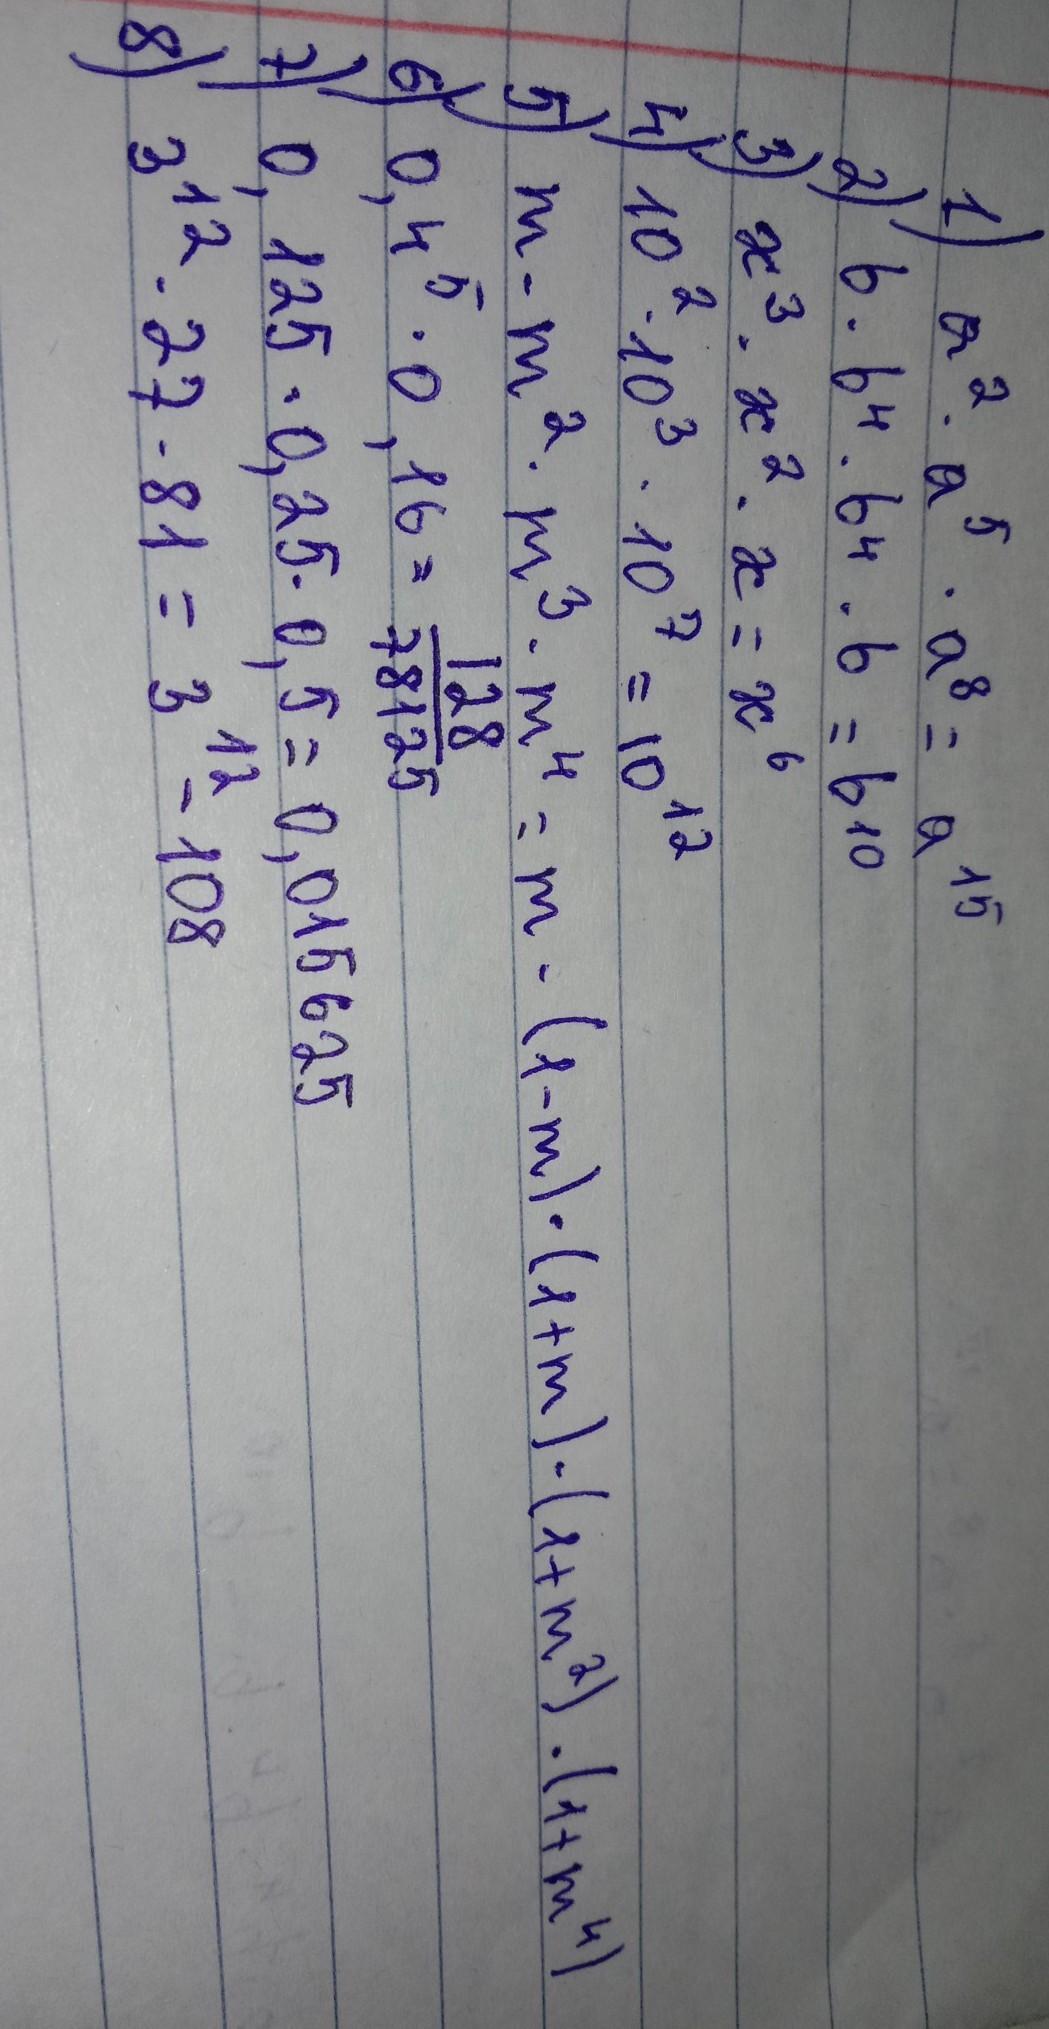 1) a² · a⁵ · a⁸ = a¹⁵
2) b · b⁴ · b⁴ · b = b¹⁰
3) x³ · x² · x = x⁶
4) 10² · 10³ · 10⁷ = 10¹²
5) m - m² · m³ · m⁴ = m · (1-m) · (1+m) · (1+m²) · (1+m⁴)
6) 0,4⁵ · 0,16 = 128/78125
7) 0,125 · 0,25 · 0,5 = 0,015625
8) 3¹² · 27 - 81 = 3¹² - 108